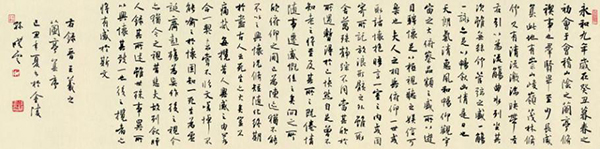 永和九年歲在癸丑暮春之
初會于會稽山陰之蘭亭脩
稧事也羣賢畢至少長咸
集此地有崇山峻嶺茂林脩
竹又有清流激湍暎帶左
右引以為流觴曲水列坐其
次雖無絲竹管弦之盛一觴
一詠亦足以暢敘幽情是日也
天朗氣清惠風和暢仰觀宇
宙之大俯察品類之盛所以遊
目騁懷足以極視聽之娛信可
樂也夫人之相與俯仰一世或
取諸懷抱晤言一室之內或因
寄所託放浪形骸之外雖趣
舍萬殊靜躁不同當其欣於
所遇暫得於己快然自足不
知老之將至及其所之既倦情
隨事遷感慨係之矣向之所
欣俛仰之間已為陳迹猶不能
不以之興懷況脩短隨化終期
於盡古人云死生亦大矣豈不
痛哉每攬昔人興感之由若
合一契未嘗不臨文嗟悼不
能喻之於懷固知一死生為虛
誕齊彭殤為妄作後之視今
亦猶今之視昔悲夫故列敘時
人錄其所述雖世殊事異所
以興懷其致一也後之攬者亦
將有感於斯文
古錄晉王羲之
蘭亭集序
己丑年夏日於金陵